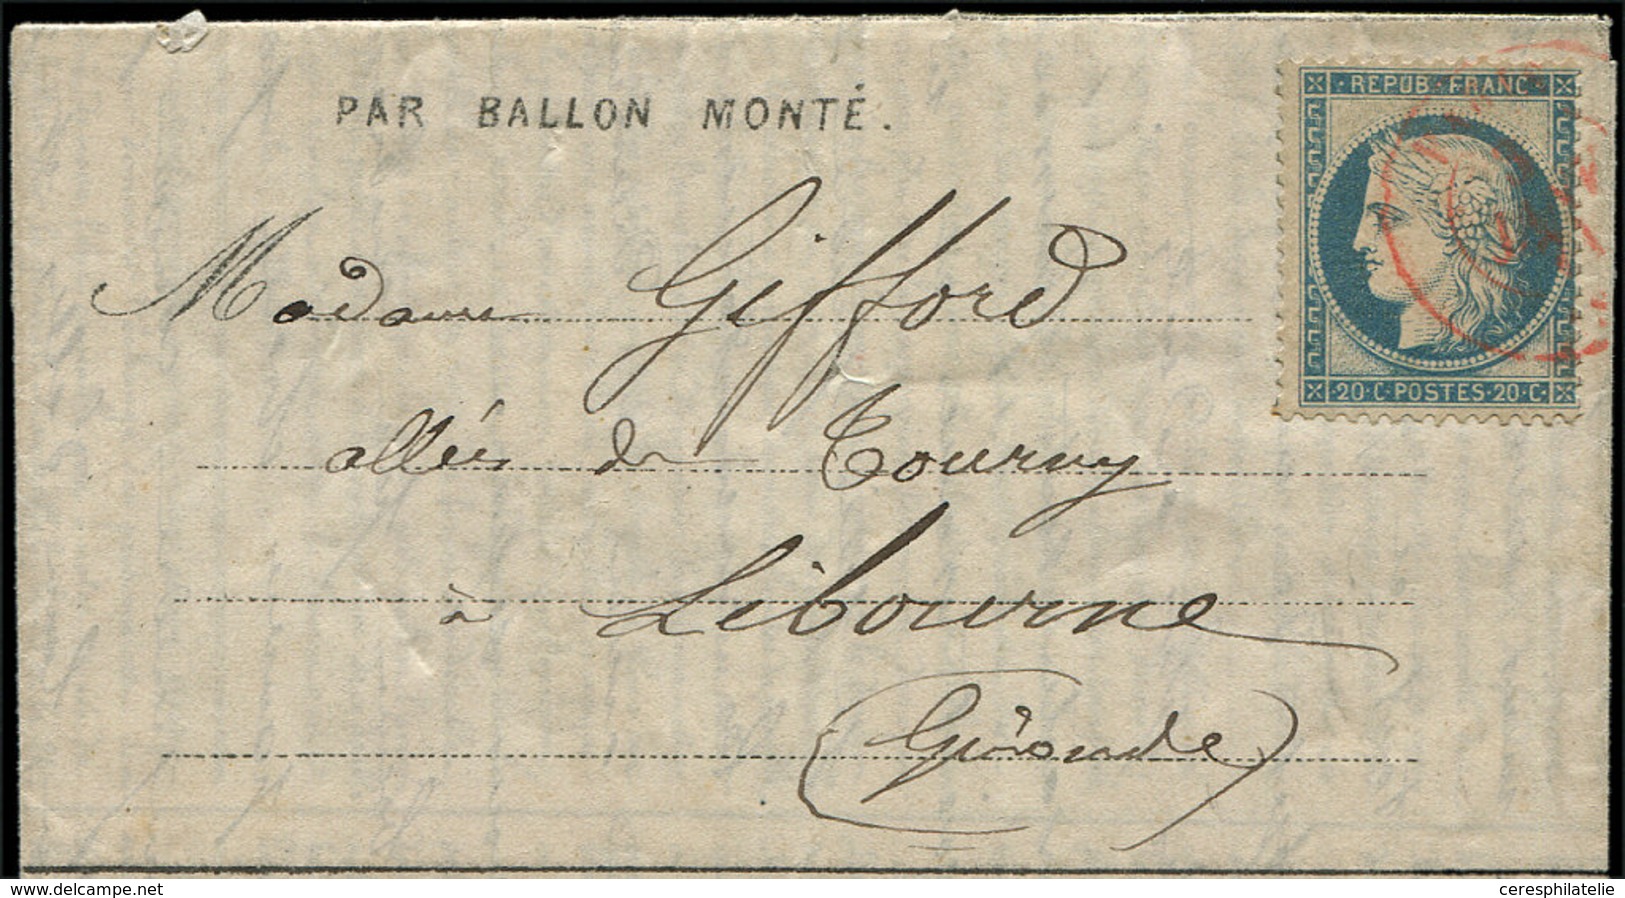 PAR BALLON MONTÉ.
REPUB·FRANC
20·C·POSTES·20·C·
Madame Gifford
allées de Tourny
à Libourne
(Gironde)
www.delcampe.net
ceresphilatelie